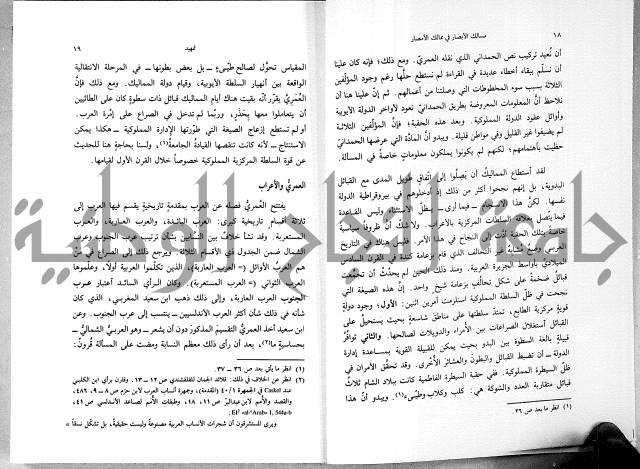 ١٨
مسالك الأبصار في ممالك الأمصار
أن نُعيد تركيب نص الحمداني الذي نقله العمريّ. ومع ذلك؛ فإنه كان علينا
أن نسلّم ببقاء أخطاء عديدة في القراءة لم نستطع حلّها رغم وجود المؤلّفين
الثلاثة بسبب سوء المخطوطات التي وصلتنا من أعمالهم. ثم إنّ علينا هنا أن
نلاحظ أنّ المعلومات المعروضة بطريق الحمداني تعود لأواخر الدولة الأيوبية
وأوائل عقود الدولة المملوكية. وبعد هذه الحقبة؛ فإنّ المؤلفين الثلاثة
لم يضيفوا غير القليل وفي مواطن قليلة. ويبدو أنّ المادّة التي عرضها الحمداني
حظيت باهتمامهم؛ لكنهم لم يكونوا يملكون معلوماتٍ خاصةً في المسألة.
لقد استطاع المماليك أن يَصِلُوا إلى اتّفاق طويل المدى مع القبائل
البدوية، بل إنهم نجحوا أكثر من ذلك إذ أدخلوهم في بيروقراطية الدولة
نفسها. لكنّ هذا الانسجام ـ فيما أرى ـ يظلّ الاستثناء وليس القاعدة
فيما يتّصل بعلاقة السلطات المركزية بالأعراب. ولا شكّ أنّ ظروفاً سياسيةً
خاصةً بتلك الحقبة أدّت إلى النجاح في هذا الأمر. فليس هناك في التاريخ
العربي وضع مُشابه غير التحالف الذي قام بزعامة كندة في القرن السادس
الميلادي بأواسط الجزيرة العربية. ومنذ ذلك الحين لم يحدُث أن تجمّعت
قبائل ضخمةٌ على شكل تحالفٍ بزعامة شيخ واحد. إنّ هذه الصيغة التي
نجحت في ظلّ السلطة المملوكية استلزمت أمرين اثنين: الأول: وجود دولةٍ
قويةٍ مركزية الطابع، تمتدّ سلطتها على مناطق شاسعة بحيث يستحيل على
القبائل استغلال الصراعات بين الأمراء والدويلات لصالحها. والثاني توافُر
قبيلة بالغة السطوة بين البدو بحيث يمكن للقبيلة القوية بمساعدة إدارة
الدولة ـ أن تضبط القبائل والبطون والعشائر الأُخرى. وقد تحقّق الأمران في
ظلّ السيطرة المملوكية. ففي حقبة السيطرة الفاطمية كانت ببلاد الشام ثلاثُ
قبائل متقاربة العدد والشوكة هي: كلب وكلاب وطيّىء(١). ويبدو أنّ هذا
(١) انظر ما بعد ص ٣٦.
تمهيد
١٩
المقياس تحوّل لصالح طيّىء ـ بل بعض بطونها ـ في المرحلة الانتقالية
الواقعة بين انهيار السلطة الأيوبية، وقيام دولة المماليك. ومع ذلك فإنّ
العُمَريّ يقرّر أنّه بقيت هناك أيام المماليك قبائل ذات سطوةٍ كان على الطائيين
أن يتعاملوا معها بحَذَرٍ، وربّما لم تدخل في الصراع على إمْرة العرب.
أو لم تستطع إزعاج الصيغة التي طوّرتها الإدارة المملوكية ـ هكذا يمكن
الاستنتاج ـ لأنه كانت تنقصها القيادة الجامعة(١). ولسنا بحاجةٍ هنا للحديث
عن قوة السلطة المركزية المملوكية خصوصاً خلال القرن الأول لقيامها.
العمريّ والأعراب
يفتتح العُمريّ فصله عن العرب بمقدمةٍ تاريخيةٍ يقسم فيها العرب إلى
ثلاثة أقسام تاريخية كبرى: العرب البائدة، والعرب العاربة، والعرب
المستعربة. وقد نشأ خلافٌ بين النسّابين بشأن ترتيب عرب الجنوب وعرب
الشمال ضمن الجدول ذي الأقسام الثلاثة. ويرجع ذلك إلى الصراع في مَنْ
هم العربُ الأوائل (= العرب العاربة)، الذين تكلّموا العربية أولاً، وعلّموها
العرب الثواني (= العرب المستعربة). وكان الرأي السائد اعتبار عرب
الجنوب العرب العاربة، وإلى ذلك ذهب ابن سعيد المغربي، الذي كان
شأنه في ذلك شأن أكثر العرب الأندلسيين ـ ينتسب إلى عرب الجنوب. وعن
ابن سعيد أخذ العمريّ التقسيم المذكور دون أن يشعر ـ وهو العربيّ الشماليّ ـ
بحساسيةٍ ما(٢)، بعد أن رأى ذلك معظم النسّابة ومضت على المسألة قُرونٌ:
(١) انظر ما يأتي بعد ص ٣٦ ـ ٣٧.
(٢) انظر عن الخلاف في ذلك: قلائد الجمان للقلقشندي ص ١٢ ـ ١٣. وقارن برأي ابن الكلبي
عند Caskel في الجمهرة ١/ ٤٠ (المقدمة)، وجمهرة أنساب العرب لابن حزم ص ٨ ـ ٩، ٤٨٦،
والقصد والأمم لابن عبدالبر ص ١١، ١٨، وطبقات الأمم لصاعد الأندلسي ص ٤١،
EI² «al-ʿArab» I, 544a-b.
ويرى المستشرقون أنّ شجرات الأنساب العربية مصنوعةٌ وليست حقيقيةً، بل تشكّل نسقاً =